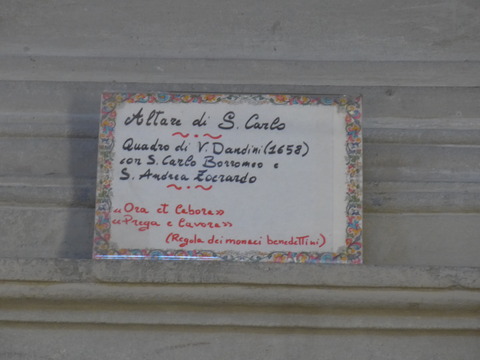 Altare di S. Carlo
Quadro di V. Dandini (1658)
con S. Carlo Borromeo e
S. Andrea Zoerardo
«Ora et labora»
«Prega e lavora»
(Regola dei monaci benedettini)